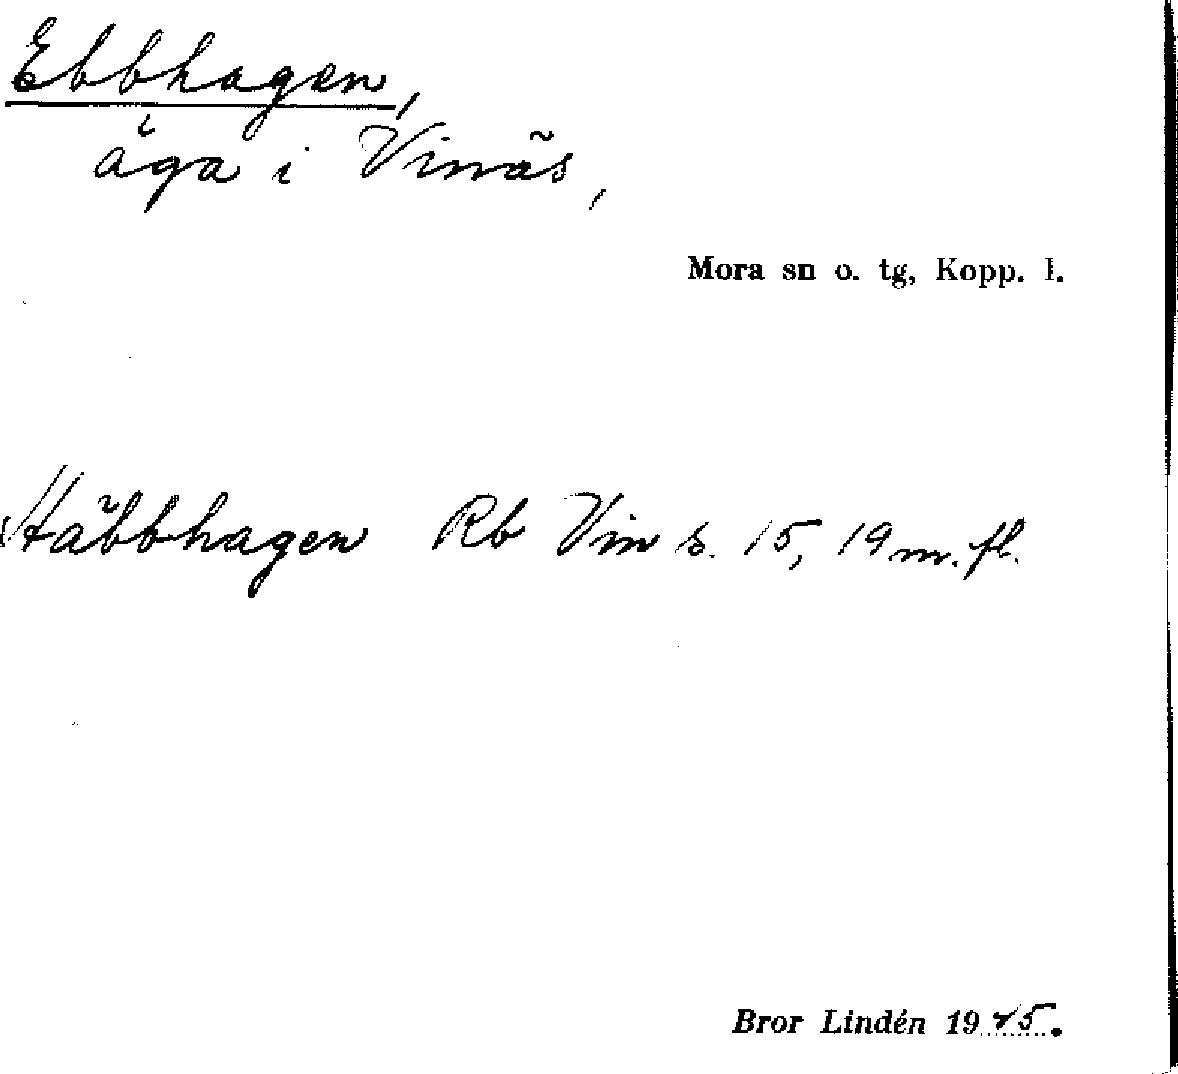 Ebbhagen,
äga i Vinäs,
Mora sn o. tg, Kopp. l.
Häbbhagen Rb Vin s. 15, 19 m. fl.
Bror Lindén 1945.